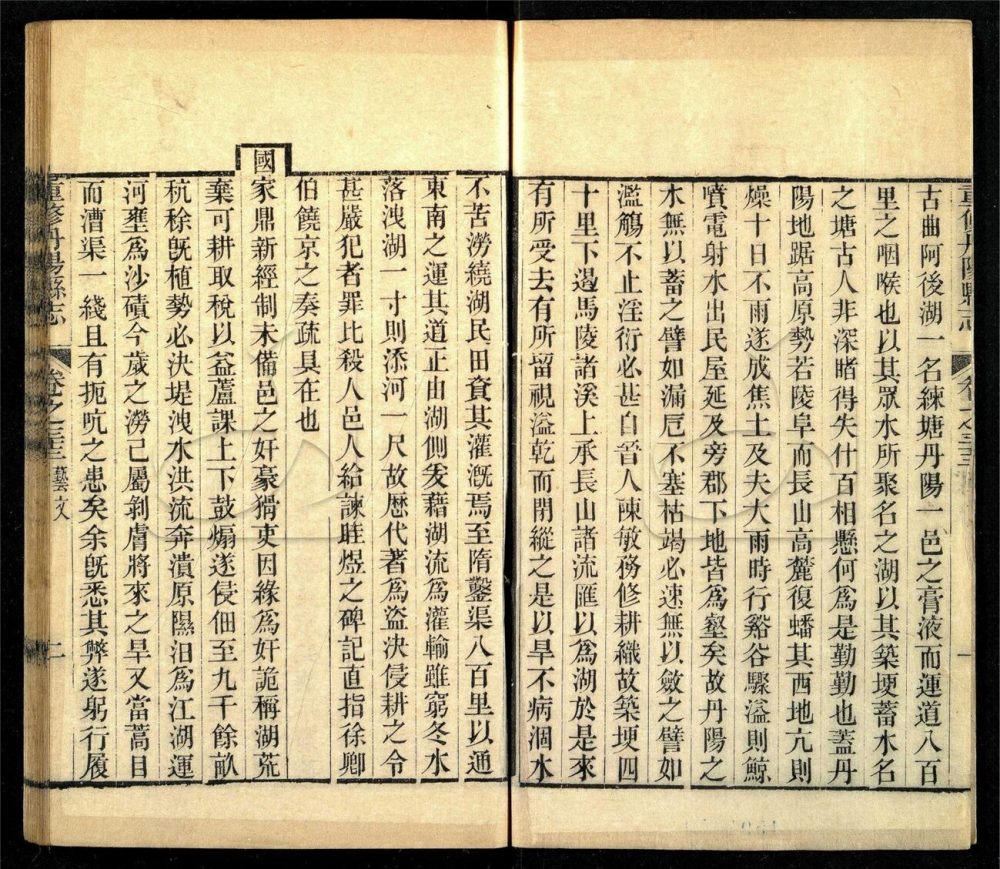 古曲阿後湖一名練塘丹陽一邑之膏液而運道八百
里之咽喉也以其眾水所聚名之湖以其築埂蓄水名
之塘古人非深睹得失什百相懸何為是勤勤也蓋丹
陽地踞高原勢若陵阜而長山高麓復蟠其西地亢則
燥十日不雨遂成焦土及夫大雨時行谿谷驟溢則鯨
噴電射水出民屋延及旁郡下地皆為壑矣故丹陽之
水無以蓄之譬如漏卮不塞枯竭必速無以斂之譬如
濫觴不止淫衍必甚自晉人陳敏務修耕織故築埂四
十里下遏馬陵諸溪上承長山諸流匯以為湖於是來
有所受去有所留視溢乾而閉縱之是以旱不病涸水
重修丹陽縣志
卷之三十三
一
不苦澇繞湖民田資其灌溉焉至隋鑿渠八百里以通
東南之運其道正由湖側發藉湖流為灌輸雖窮冬水
落洩湖一寸則添河一尺故歷代著為盜決侵耕之令
甚嚴犯者罪比殺人邑人給諫眭煜之碑記直指徐卿
伯饒京之奏疏具在也
國家鼎新經制未備邑之奸豪猾吏因緣為奸詭稱湖荒
棄可耕取稅以益蘆課上下鼓煽遂侵佃至九千餘畝
秔稌既植勢必決堤洩水洪流奔潰原隰汨為江湖運
河壅為沙磧今歲之澇已屬剝膚將來之旱又當蒿目
而漕渠一綫且有扼吭之患矣余既悉其弊遂躬行履
重修丹陽縣志
卷之三十三
藝文
二